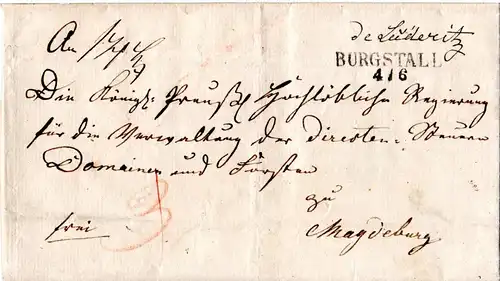 de Lüderitz
BURGSTALL
4/6
An
Die Königl: Preuß. Hochlöbliche Regierung
für die Verwaltung der directen Steuern
Domainen und Forsten
zu
frei
Magdeburg